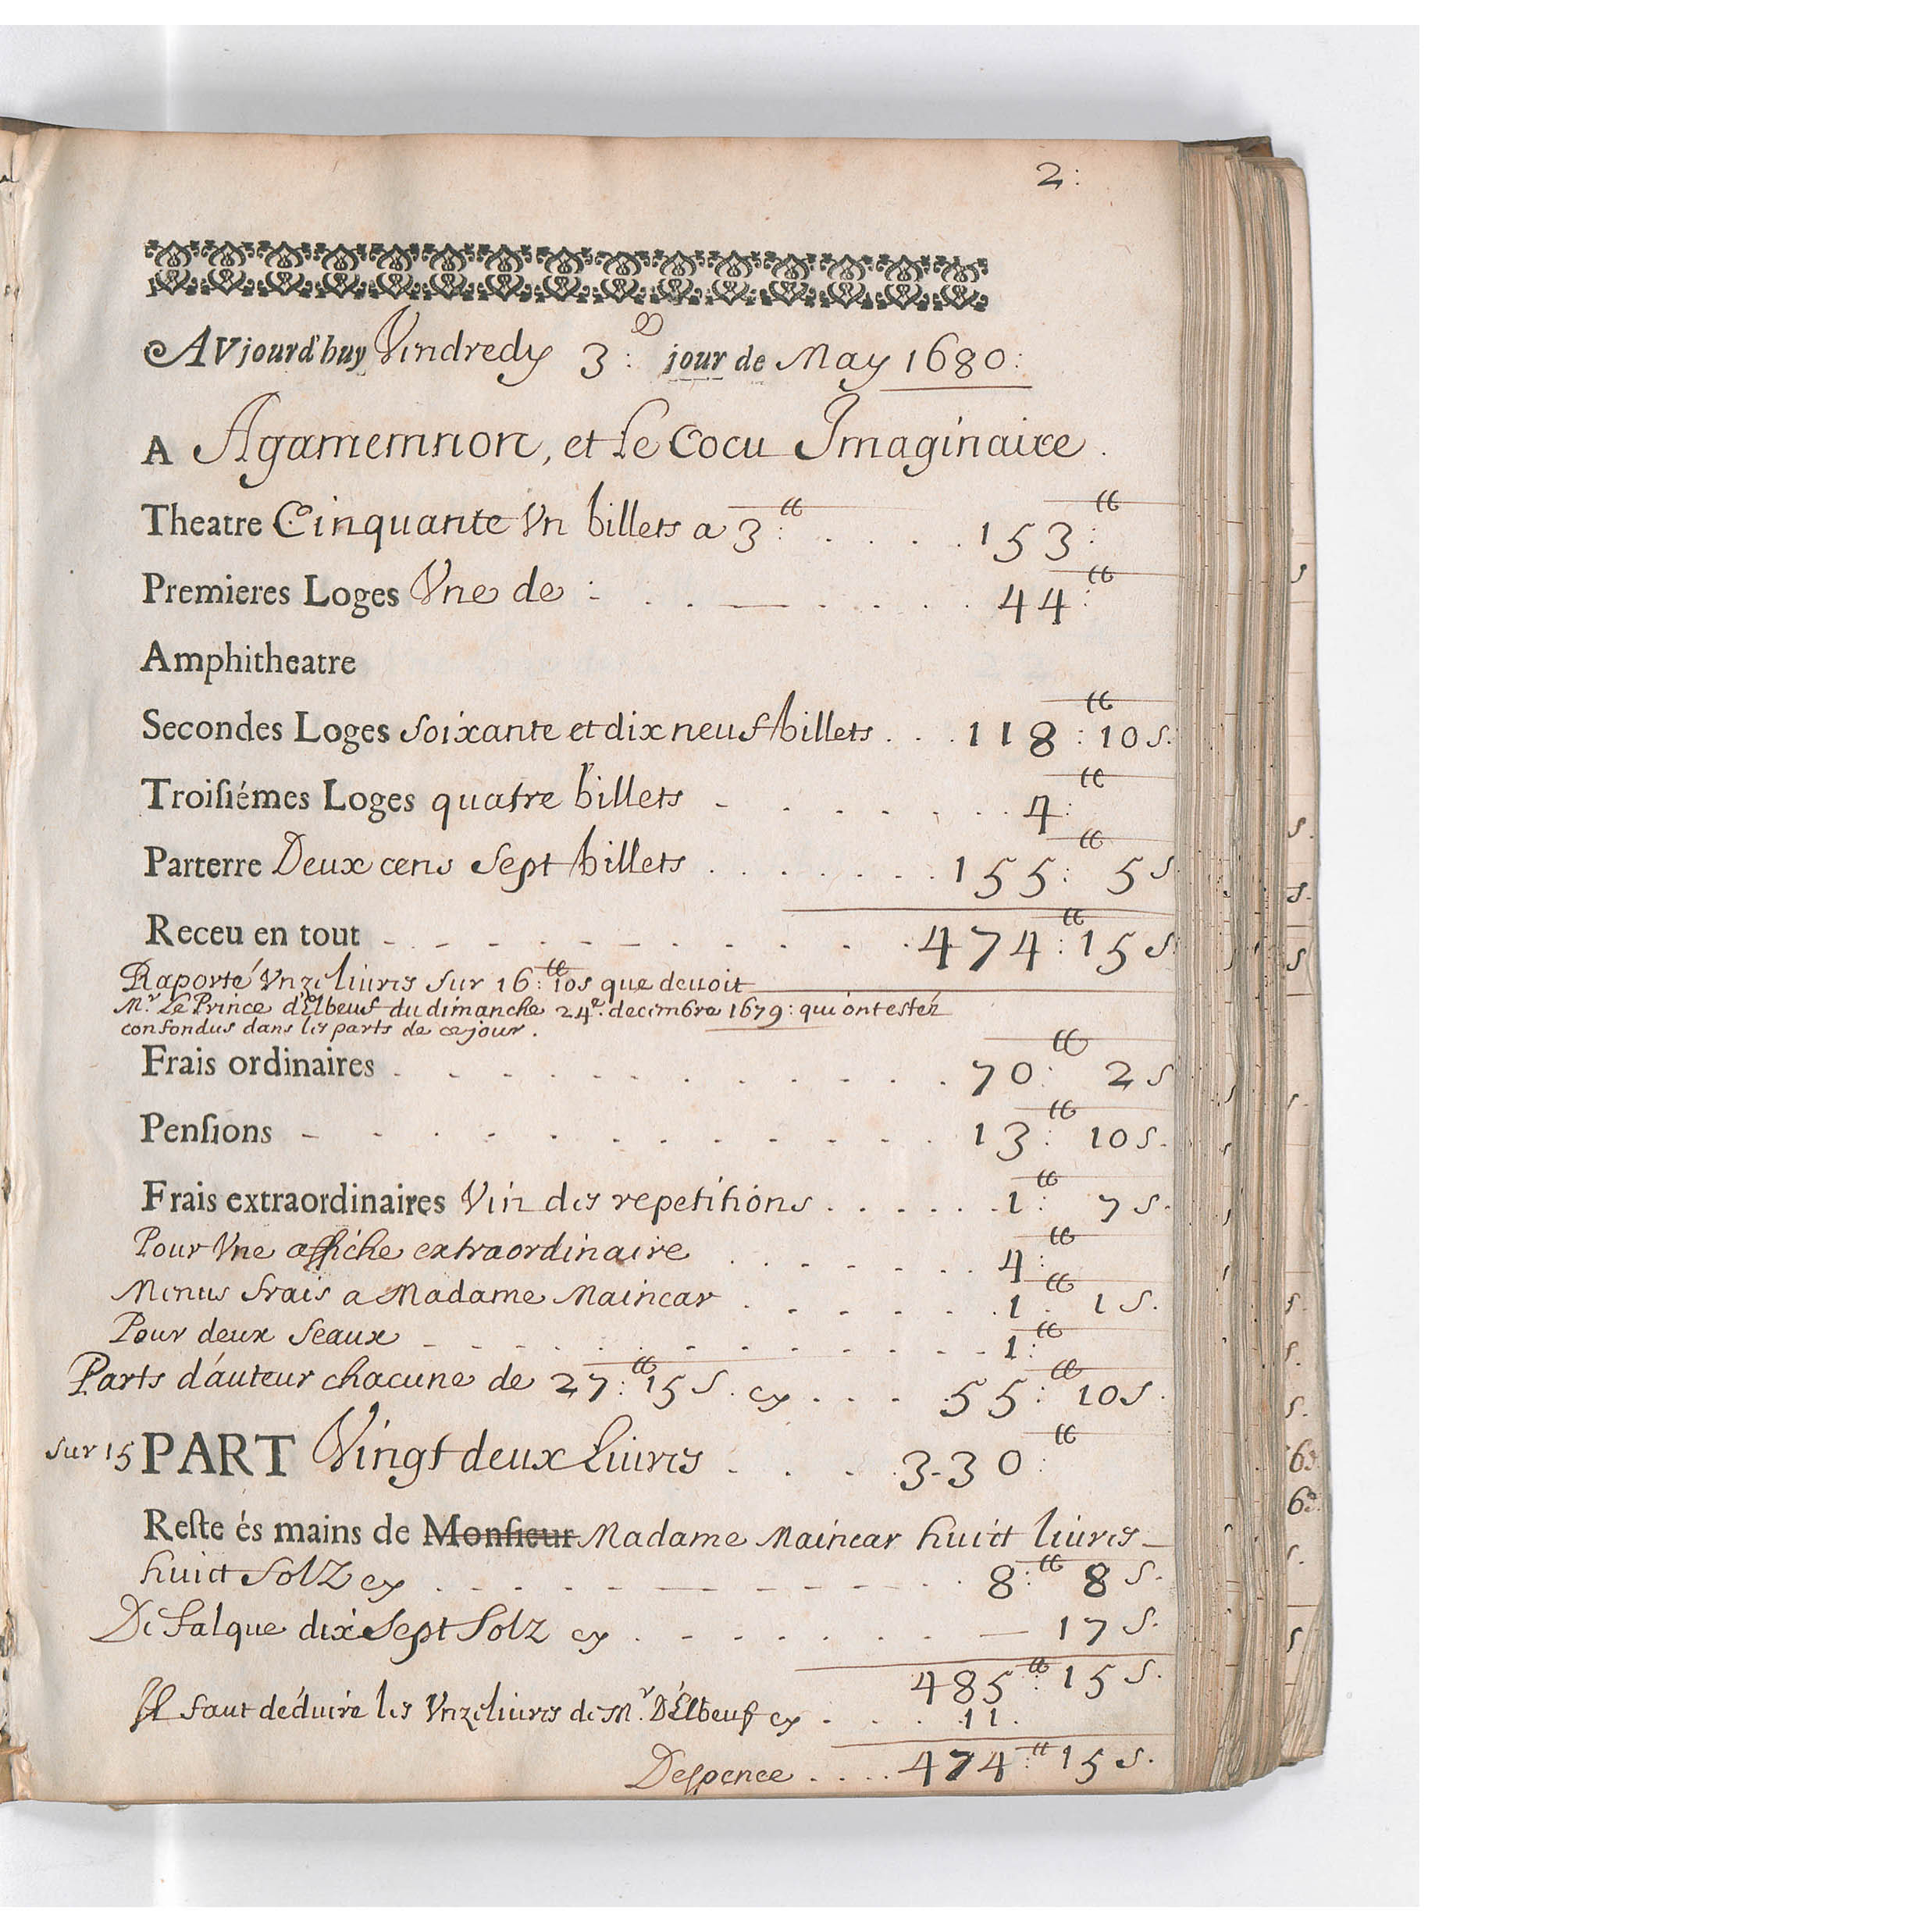 2:
AVjourd'huy Vendredy 3: jour de May 1680:
A Agamemnon, et le Cocu Imaginaire.
Theatre Cinquante Vn billets a 3:tt . . . . 153:tt
Premieres Loges Vne de : . . . . . . 44:tt
Amphitheatre
Secondes Loges soixante et dix neuf billets . . . 118:tt 10 s.
Troisiémes Loges quatre billets - . . . . . 4:tt
Parterre Deux cens Sept billets . . . . . . . 155:tt 5 s
Receu en tout - . - - . - - . . 474:tt 15 s
Raporté Vnze liures sur 16:tt 10s que deuoit
Mr. Le Prince d'Elbeuf du dimanche 24e. decembre 1679: qui ont estez
confondus dans les parts de ce jour.
Frais ordinaires . . . . . . . . . 70:tt 2 s
Pensions - . . . . . . . . 13:tt 10 s.
Frais extraordinaires Vin des repetitions . . . . . . 1:tt 7 s.
Pour Vne affiche extraordinaire . . . . . . 4:tt
Menus frais a Madame Maincar . . . . . . 1:tt 1 s.
Pour deux seaux - . . . . . . . 1:tt
Parts d'auteur chacune de 27:tt 15 s. cy . . . . 55:tt 10 s.
sur 15 PART Vingt deux liures . . . 3-30:tt
Reste és mains de Monsieur Madame Maincar huict liures
huict solz cy . . . . . . . 8:tt 8 s.
De falque dix sept solz cy . . . . . . — 17 s.
485:tt 15 s.
Il faut déduire les Vnze liures de Mr. D'Elbeuf cy . . . . 11.
Despence . . . . 474:tt 15 s.